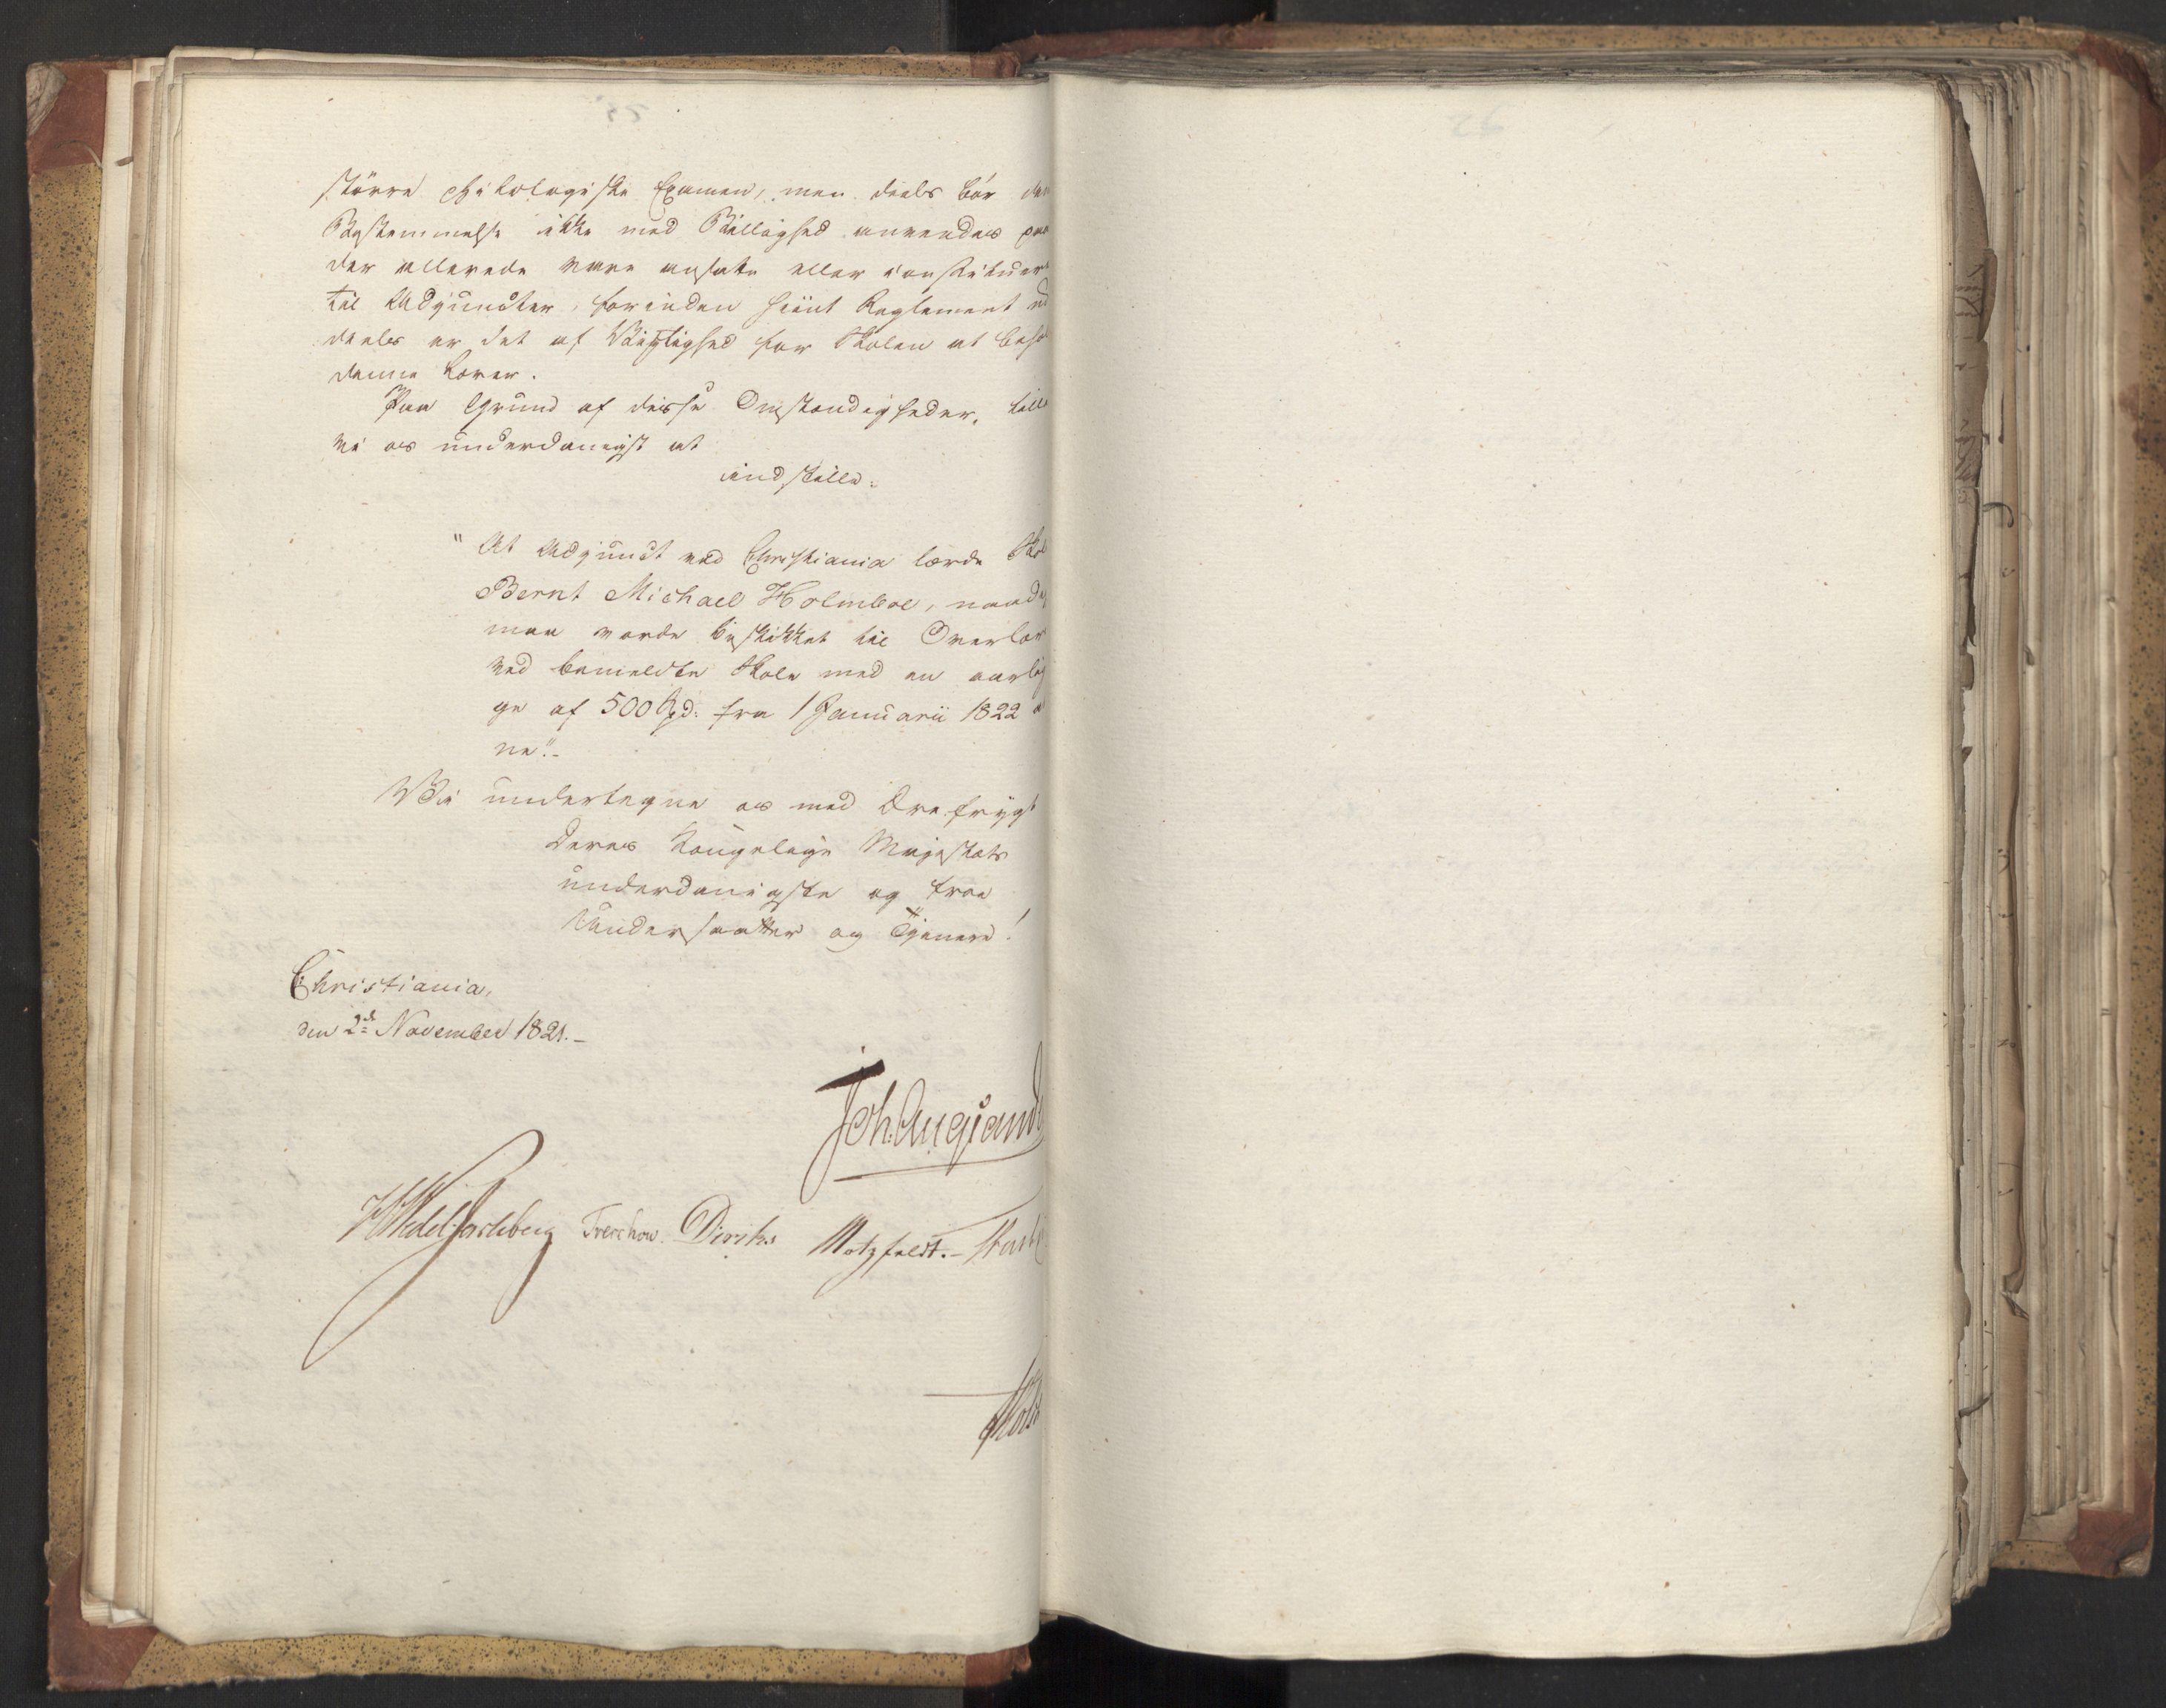 större philologiske Examen, men deels bör den
Bestemmelse ikke med Billighed anvendes paa
der allerede vare ansatte eller constituer
til Adjuncter, forinden hiint Reglement ud
deels er det af Vigtighed for Skolen at beho
denne Lærer.
Paa Grund af disse Omstændigheder, till
vi os underdanigst at
indstille:
"At Adjunct ved Christiania lærde Skol
Bernt Michael Holmboe, naadig
maa vorde beskikket til Overlær
ved bemeldte Skole med en aarlig
ge af 500 Spd: fra 1 Januarii 1822 a
ne."-
Vi undertegne os med Ærefrygt
Deres Kongelige Majestæts
underdanigste og troe
Undersaatter og Tjenere!
Christiania,
den 2d November 1821.-
Joh. Aug Sand
HWedel Jarlsberg Treschow. Diriks Motzfeldt.-
Holst